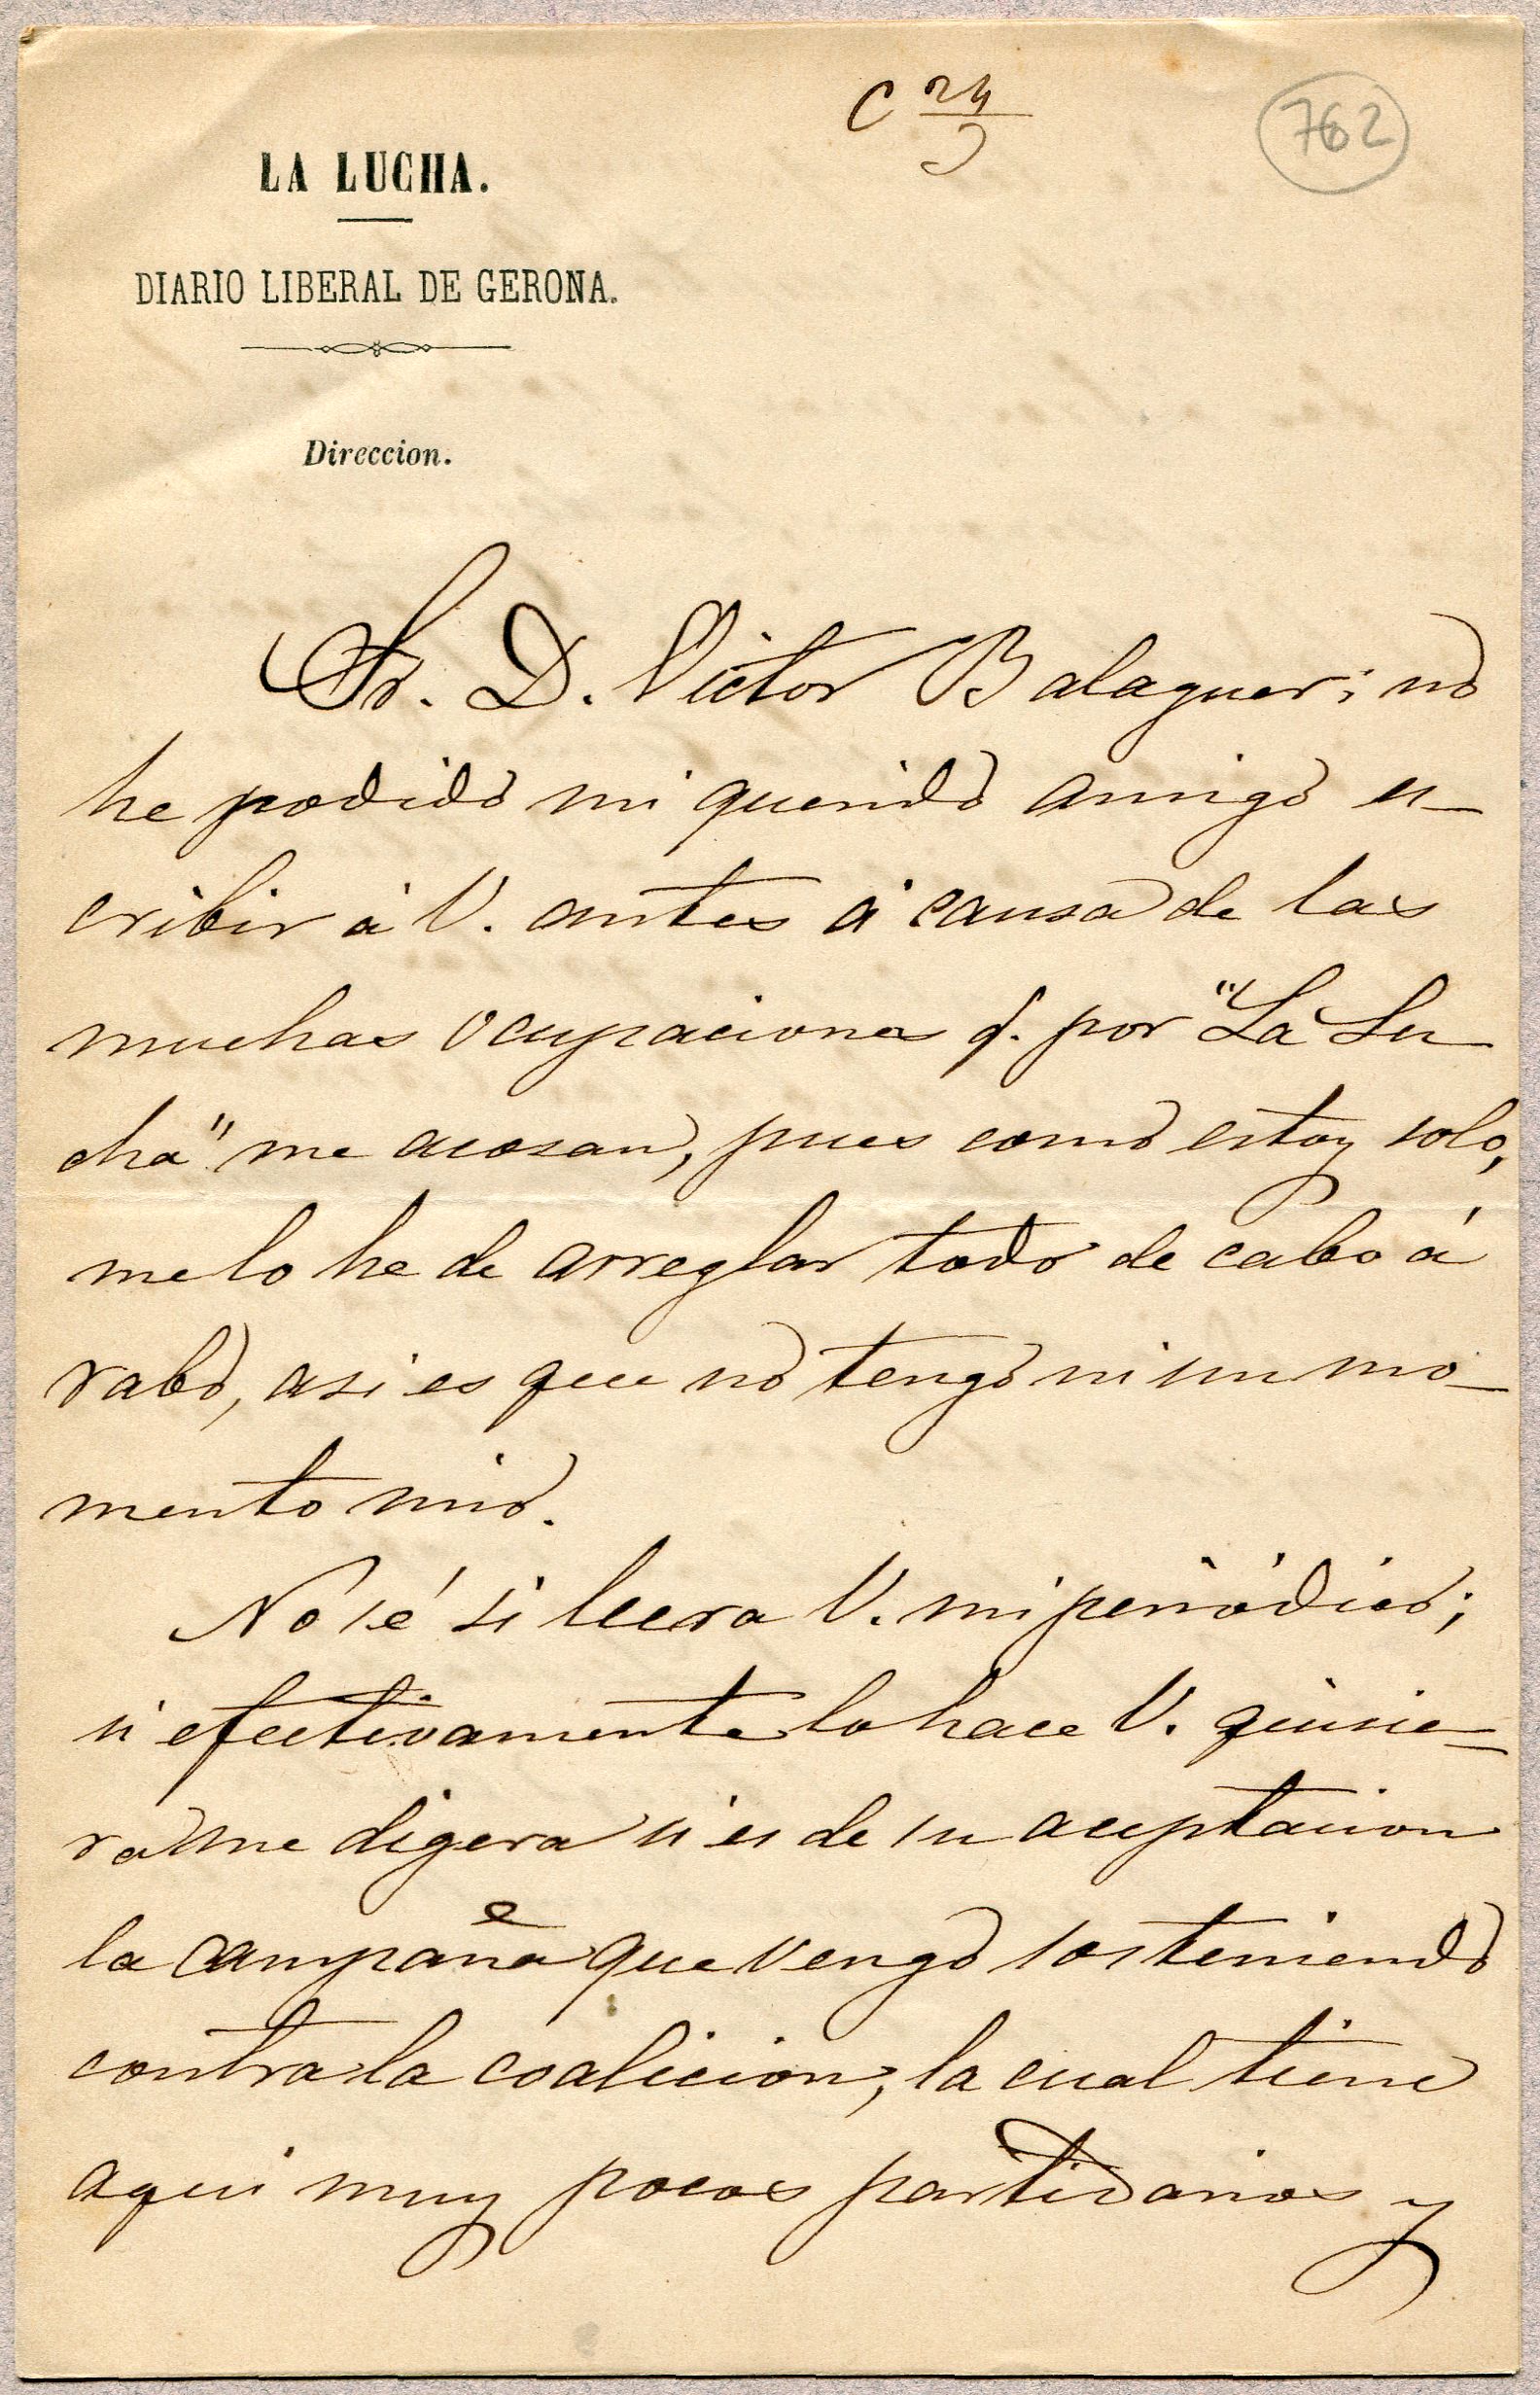 C 24
762
LA LUCHA.
DIARIO LIBERAL DE GERONA.
Direccion.
Sr. D. Victor Balaguer; no
he podido mi querido amigo es-
cribir á V. antes á causa de las
muchas ocupaciones q. por "La Lu-
cha" me acosan, pues como estoy solo,
me lo he de arreglar todo de cabo á
rabo, asi es que no tengo ni un mo-
mento mio.
No sé si leera V. mi periódico;
si efectivamente lo hace V. quisie-
ra me digera si es de su aceptacion
la campaña que vengo sosteniendo
contra la coalicion, la cual tiene
aqui muy pocos partidarios y